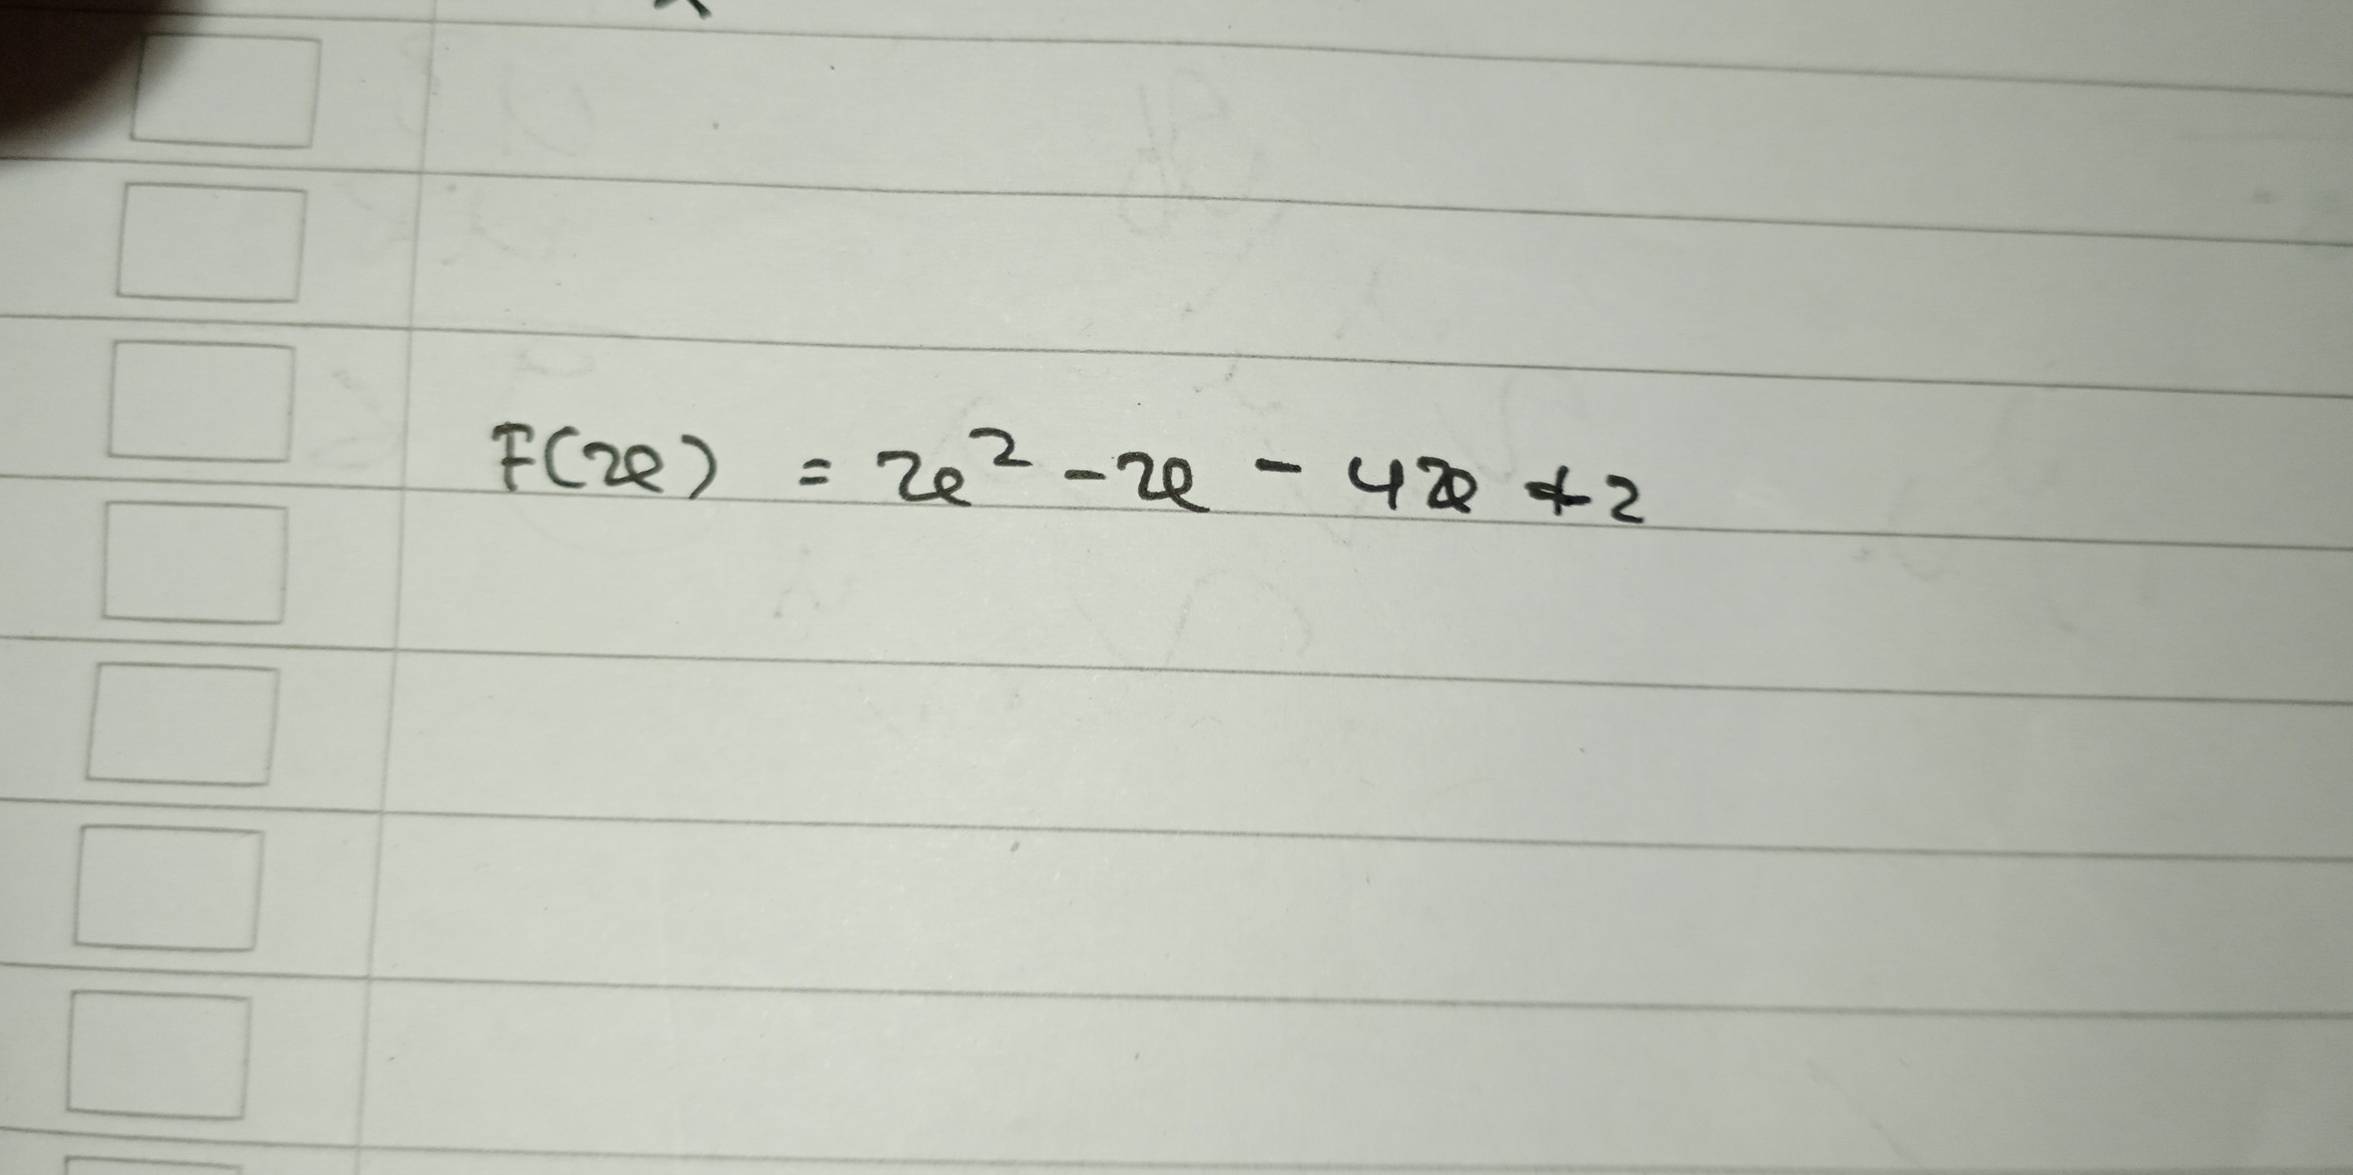 F(x) = x² - x - 4x + 2